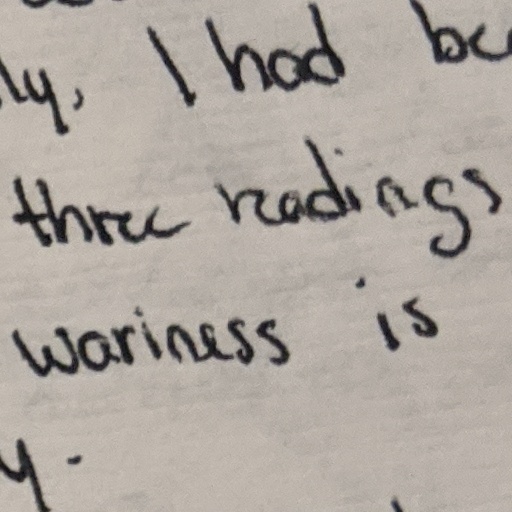 ly, I had be
three readings
wariness is
y.